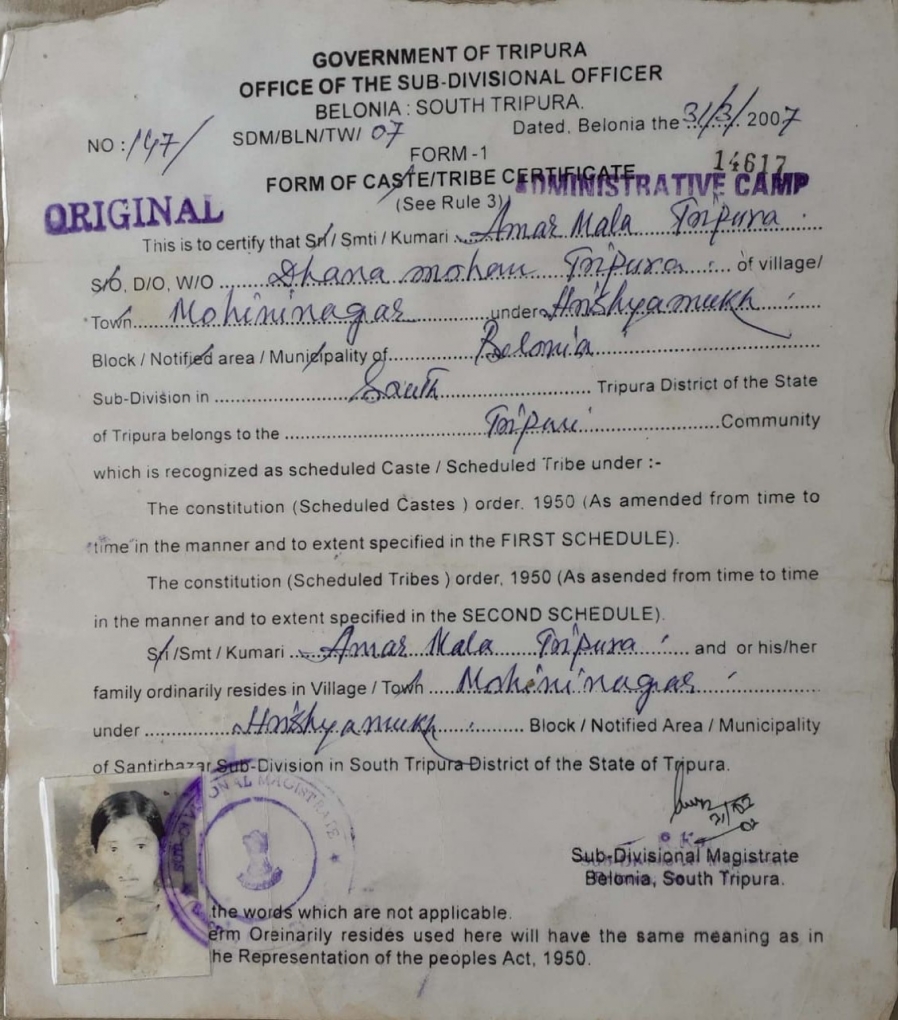 GOVERNMENT OF TRIPURA
OFFICE OF THE SUB-DIVISIONAL OFFICER
BELONIA : SOUTH TRIPURA.
NO : 147/ SDM/BLN/TW/ 07 Dated, Belonia the 31/3/ 2007
FORM -1
14617
FORM OF CASTE/TRIBE CERTIFICATE
ADMINISTRATIVE CAMP
ORIGINAL
(See Rule 3)
This is to certify that Sri / Smti / Kumari Amar Mala Tripura
S/o, D/O, W/O Dhana mohan Tripura of village/
Town Mohininagar under Hrishyamukh
Block / Notified area / Municipality of Belonia
Sub-Division in South Tripura District of the State
of Tripura belongs to the Tripuri Community
which is recognized as scheduled Caste / Scheduled Tribe under :-
The constitution (Scheduled Castes ) order. 1950 (As amended from time to
time in the manner and to extent specified in the FIRST SCHEDULE).
The constitution (Scheduled Tribes ) order, 1950 (As asended from time to time
in the manner and to extent specified in the SECOND SCHEDULE).
Sri /Smt / Kumari Amar Mala Tripura and or his/her
family ordinarily resides in Village / Town Mohininagar
under Hrishyamukh Block / Notified Area / Municipality
of Santirbazar Sub-Division in South Tripura District of the State of Tripura.
SUB-DIVISIONAL MAGISTRATE
Sub-Divisional Magistrate
Belonia, South Tripura.
the words which are not applicable.
erm Oreinarily resides used here will have the same meaning as in
he Representation of the peoples Act, 1950.